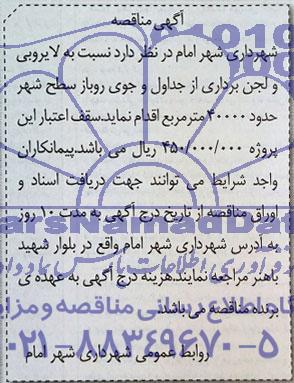 آگهی مناقصه
شهرداری شهر امام در نظر دارد نسبت به لایروبی
و لجن برداری از جداول و جوی روباز سطح شهر
حدود ۴۰۰۰۰ مترمربع اقدام نماید.سقف اعتبار این
پروژه ۴۵۰/۰۰۰/۰۰۰ ریال می باشد.پیمانکاران
واجد شرایط می توانند جهت دریافت اسناد و
اوراق مناقصه از تاریخ درج آگهی به مدت ۱۰ روز
به آدرس شهرداری شهر امام واقع در بلوار شهید
باهنر مراجعه نمایند.هزینه درج آگهی به عهده ی
برنده مناقصه می باشد
روابط عمومی شهرداری شهر امام
ParsNamadData
۰۲۱-۸۸۳۴۹۶۷۰-۵